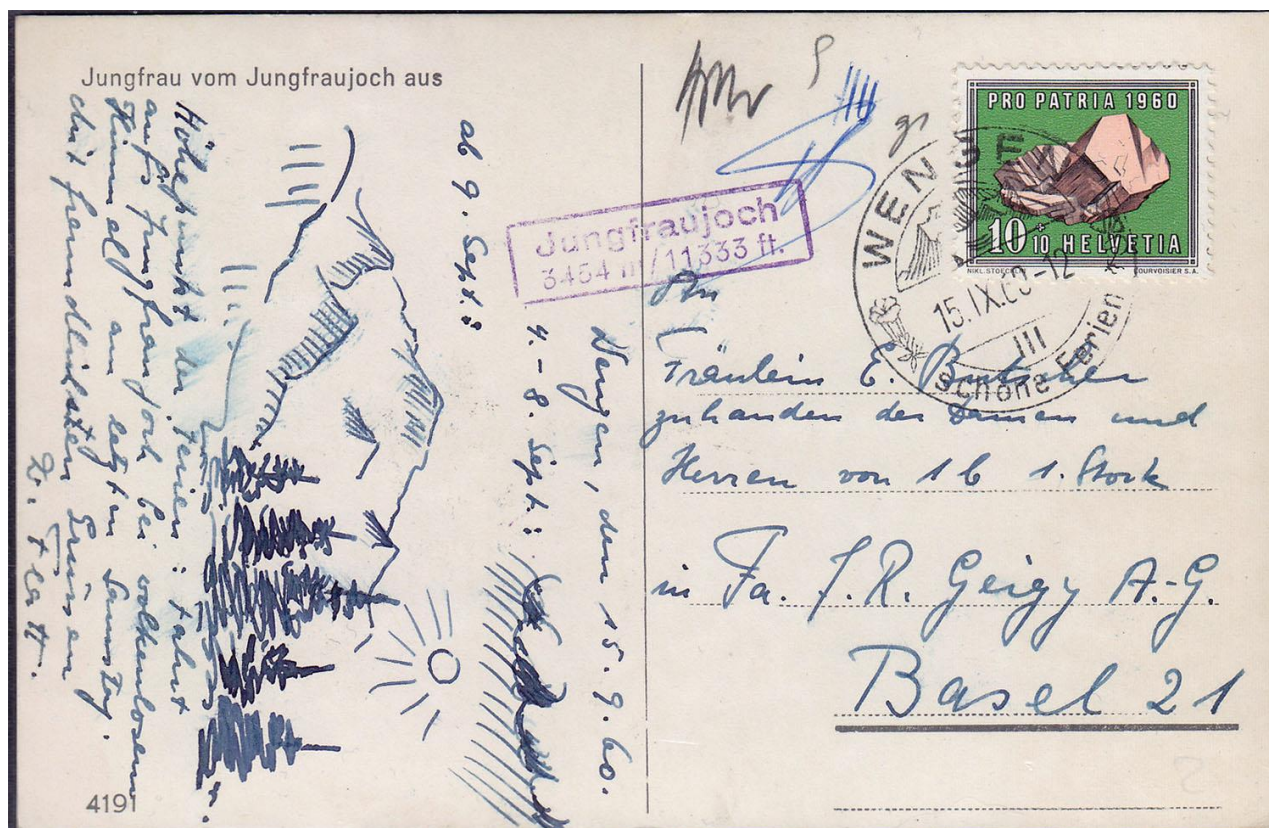 Jungfrau vom Jungfraujoch aus
Wengen, den 15.9.60.
4.-8. Sept.:
ab 9. Sept.:
Höhepunkt der Ferien: Fahrt
aufs Jungfraujoch bei wolkenlosem
Himmel am letzten Samstag.
Mit freundlichen Grüssen
4191
Jungfraujoch
3454 m/11333 ft.
PRO PATRIA 1960
10+10 HELVETIA
NIKL. STOECKLI
COURVOISIER S.A.
WENGEN
15.IX.60-12
III
schöne Ferien
An
Fräulein E.
zuhanden der Damen und
Herren von 16 1. Stock
in Fa. J.R. Geigy A.-G.
Basel 21